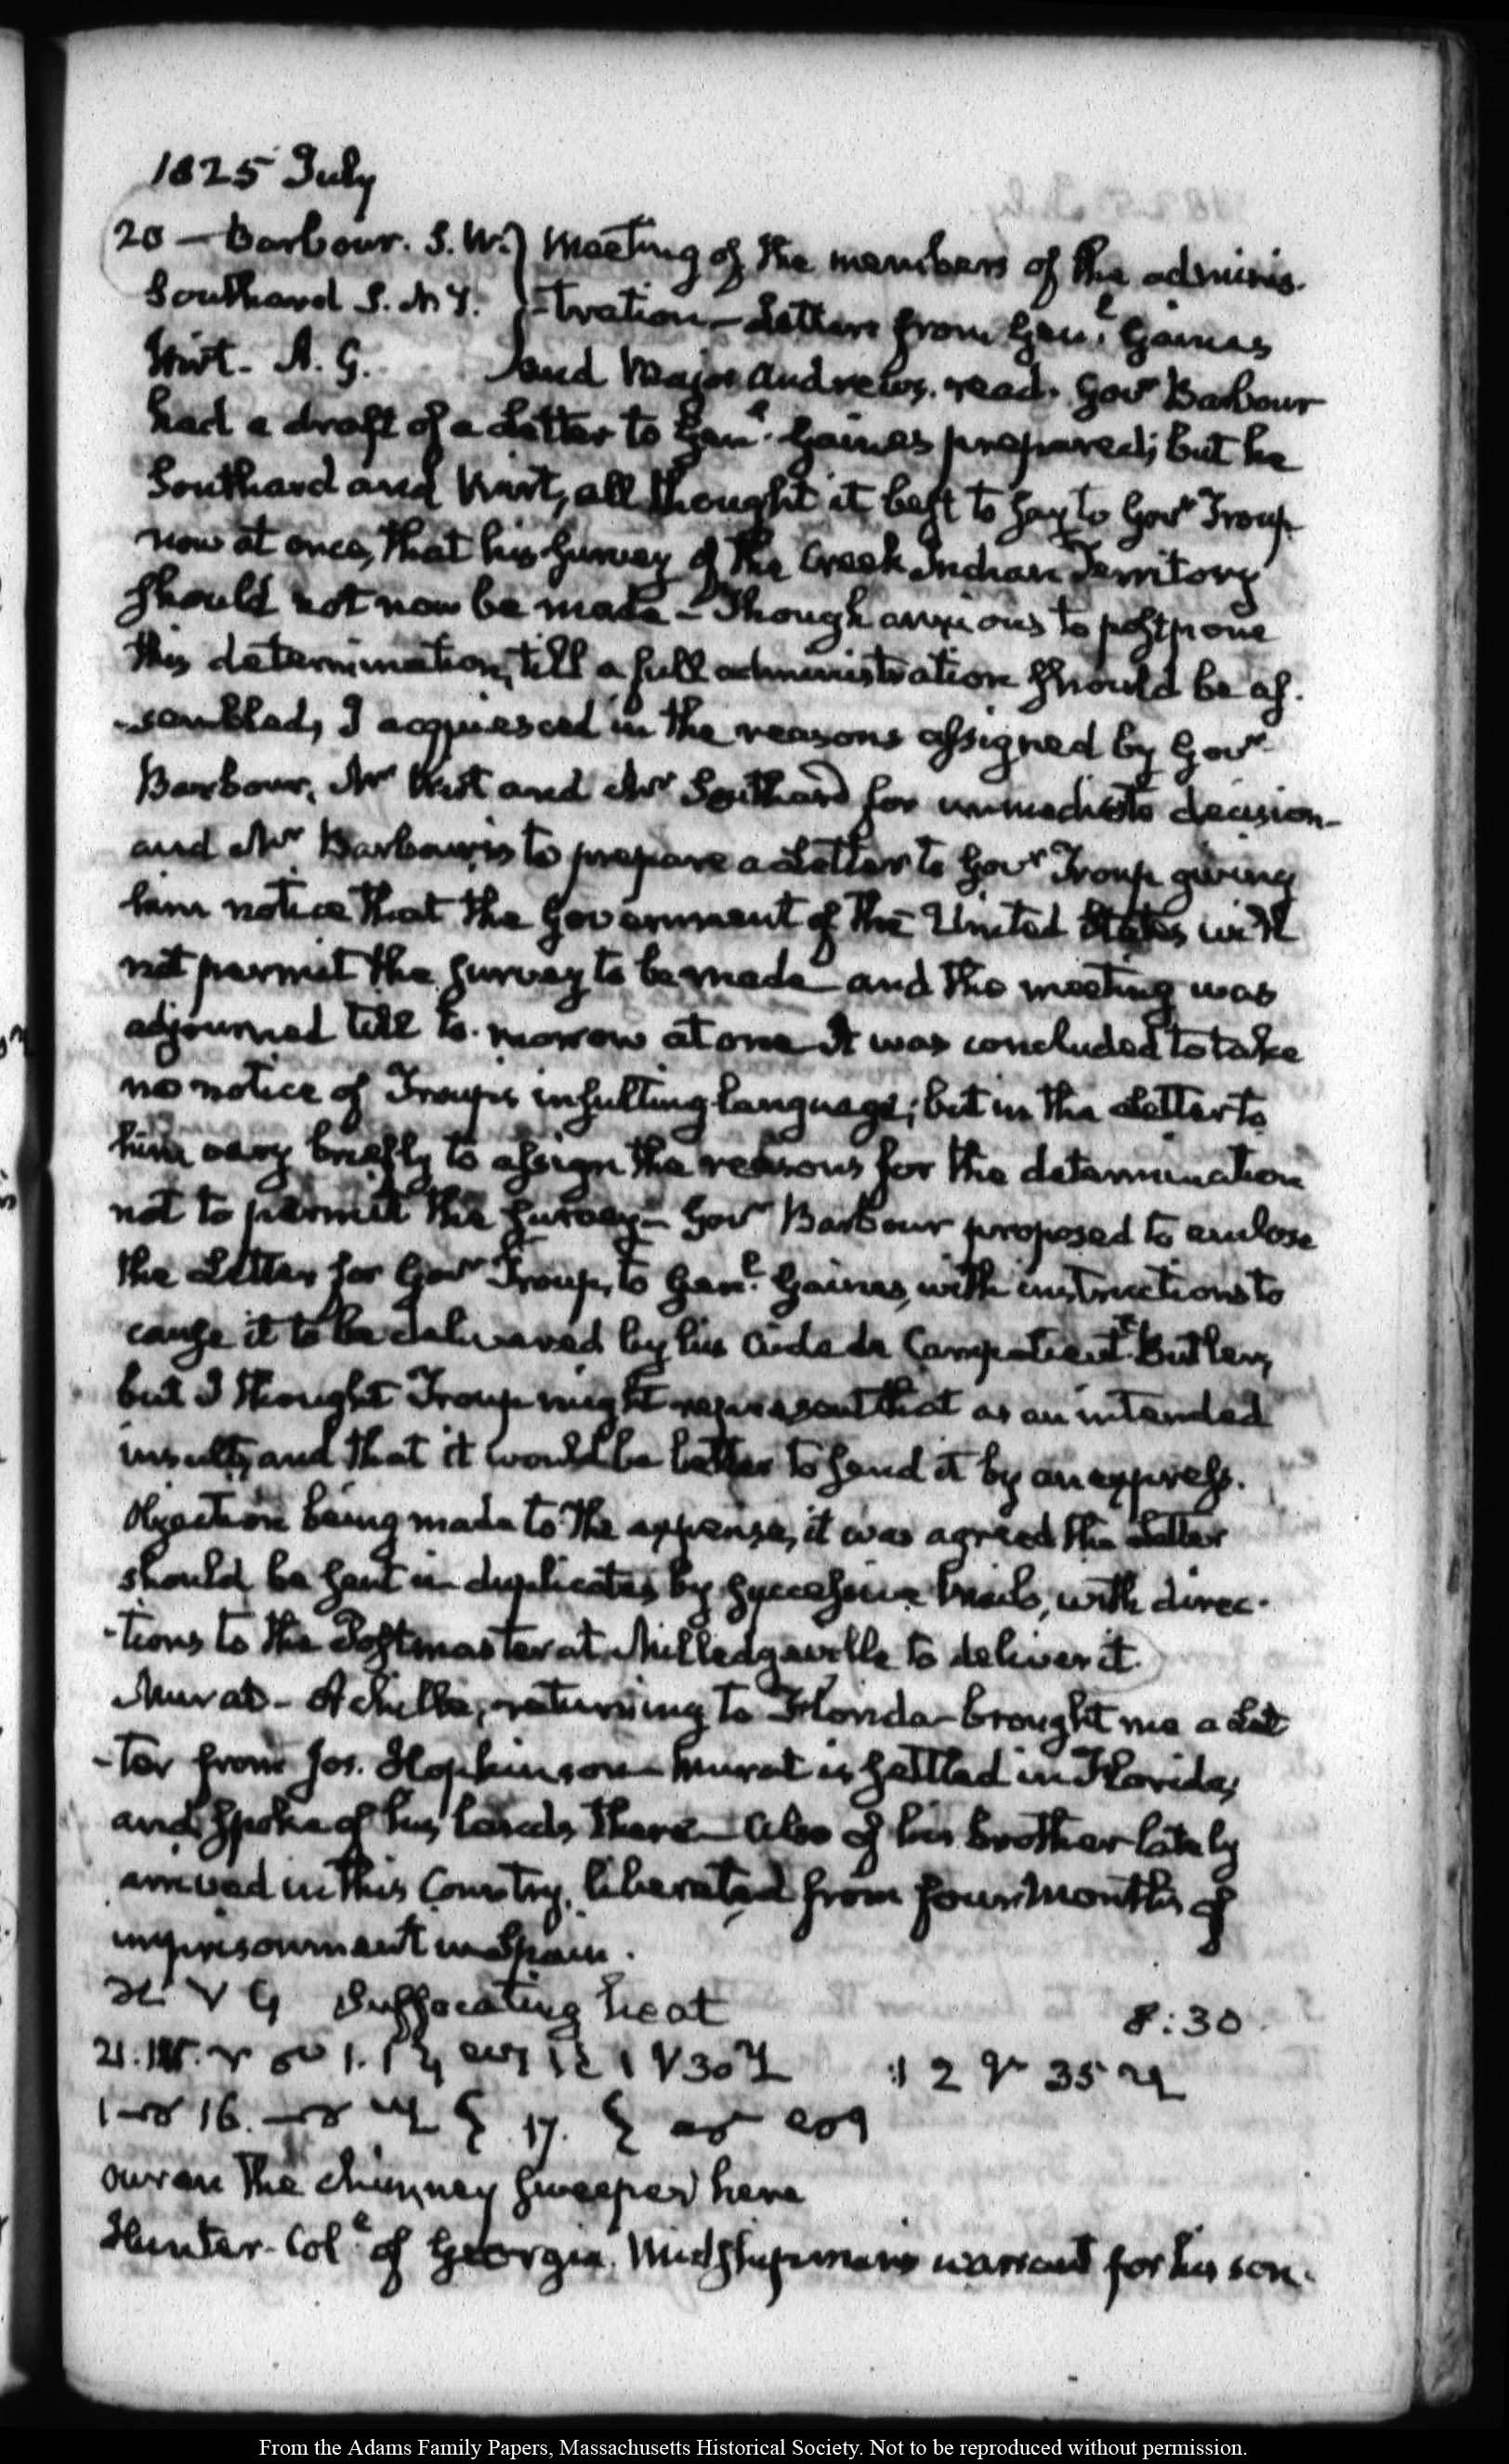 1825 July
20 — Barbour. S. W. } Meeting of the members of the adminis-
Southard S. N. Y. } -tration — Letters from Genl. Gaines
Wirt. A. G. } and Major Andrews. read. Govr Barbour
had a draft of a Letter to Genl. Gaines prepared; but he
Southard and Wirt, all thought it best to say to Govr Troup
now at once, that his survey of the Creek Indian Territory
should not now be made — Though anxious to postpone
this determination, till a full administration should be as-
-sembled, I acquiesced in the reasons assigned by Govr
Barbour, Mr Wirt and Mr Southard for immediate decision —
and Mr Barbour is to prepare a Letter to Govr Troup giving
him notice that the Government of the United States will
not permit the survey to be made — and the meeting was
adjourned till to-morrow at one — It was concluded to take
no notice of Troup's insulting language; but in the Letter to
him very briefly to assign the reasons for the determination
not to permit the survey — Govr Barbour proposed to enclose
the Letter for Govr Troup, to Genl. Gaines, with instructions to
cause it to be delivered by his Aid de Camp Lieutt Butler,
but I thought Troup might represent that as an intended
insult, and that it would be better to send it by an express.
Objection being made to the expense, it was agreed the Letter
should be sent in duplicates by successive Mails, with direc-
-tions to the Postmaster at Milledgeville to deliver it.
Murat — Achille, returning to Florida — brought me a Let
-ter from Jos. Hopkinson — Murat is settled in Florida,
and spoke of his lands there — Also of his brother lately
arrived in this Country, liberated from four Months of
imprisonment in Spain.
Suffocating heat 8:30
21. 30 2 35
1 16. 17.
the chimney sweeper here
Hunter — Coll. of Georgia. Midshipman's warrant for his son.
From the Adams Family Papers, Massachusetts Historical Society. Not to be reproduced without permission.